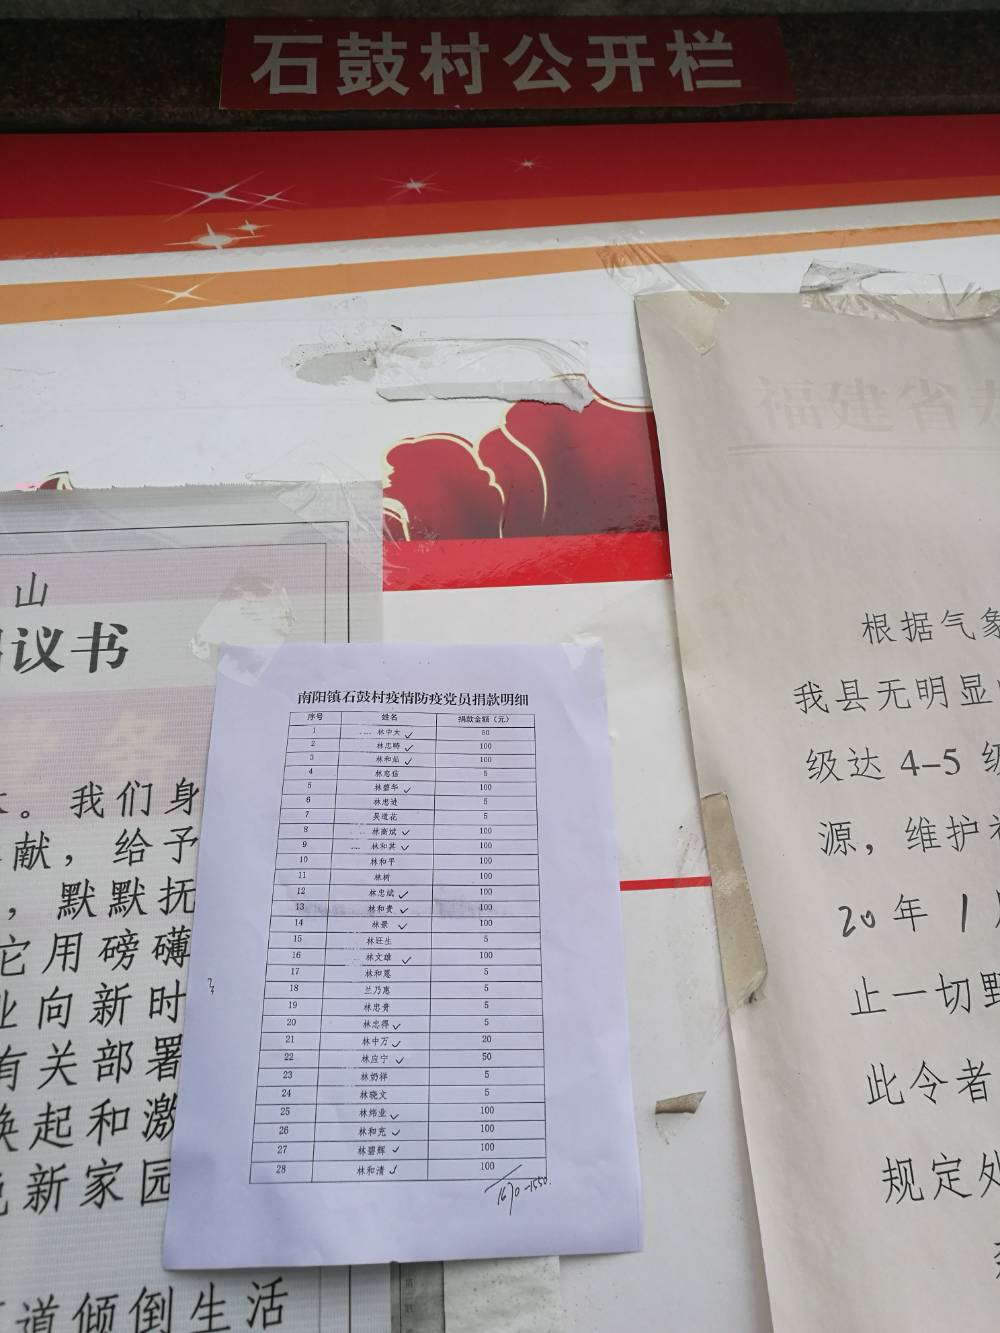 石鼓村公开栏
福建省
山
议书
。我们身
献，给予
，默默抚
它用磅礴
业向新时
有关部署
唤起和激
新家园
道倾倒生活
南阳镇石鼓村疫情防疫党员捐款明细
序号 姓名 捐款金额（元）
1 林中大 50
2 林忠畴 100
3 林和灿 100
4 林忠信 5
5 林碧华 100
6 林忠进 5
7 吴道花 5
8 林商斌 100
9 林和其 100
10 林和平 100
11 林树 100
12 林忠斌 100
13 林和贵 100
14 林景 100
15 林旺生 5
16 林文雄 100
17 林和恩 5
18 兰乃惠 5
19 林忠贵 5
20 林忠得 5
21 林中万 20
22 林应宁 50
23 林奶祥 5
24 林晓文 5
25 林炜业 100
26 林和充 100
27 林碧辉 100
28 林和清 100
1670-1550
根据气象
我县无明显
级达 4-5 级
源，维护
20年1月
止一切野
此令者
规定处